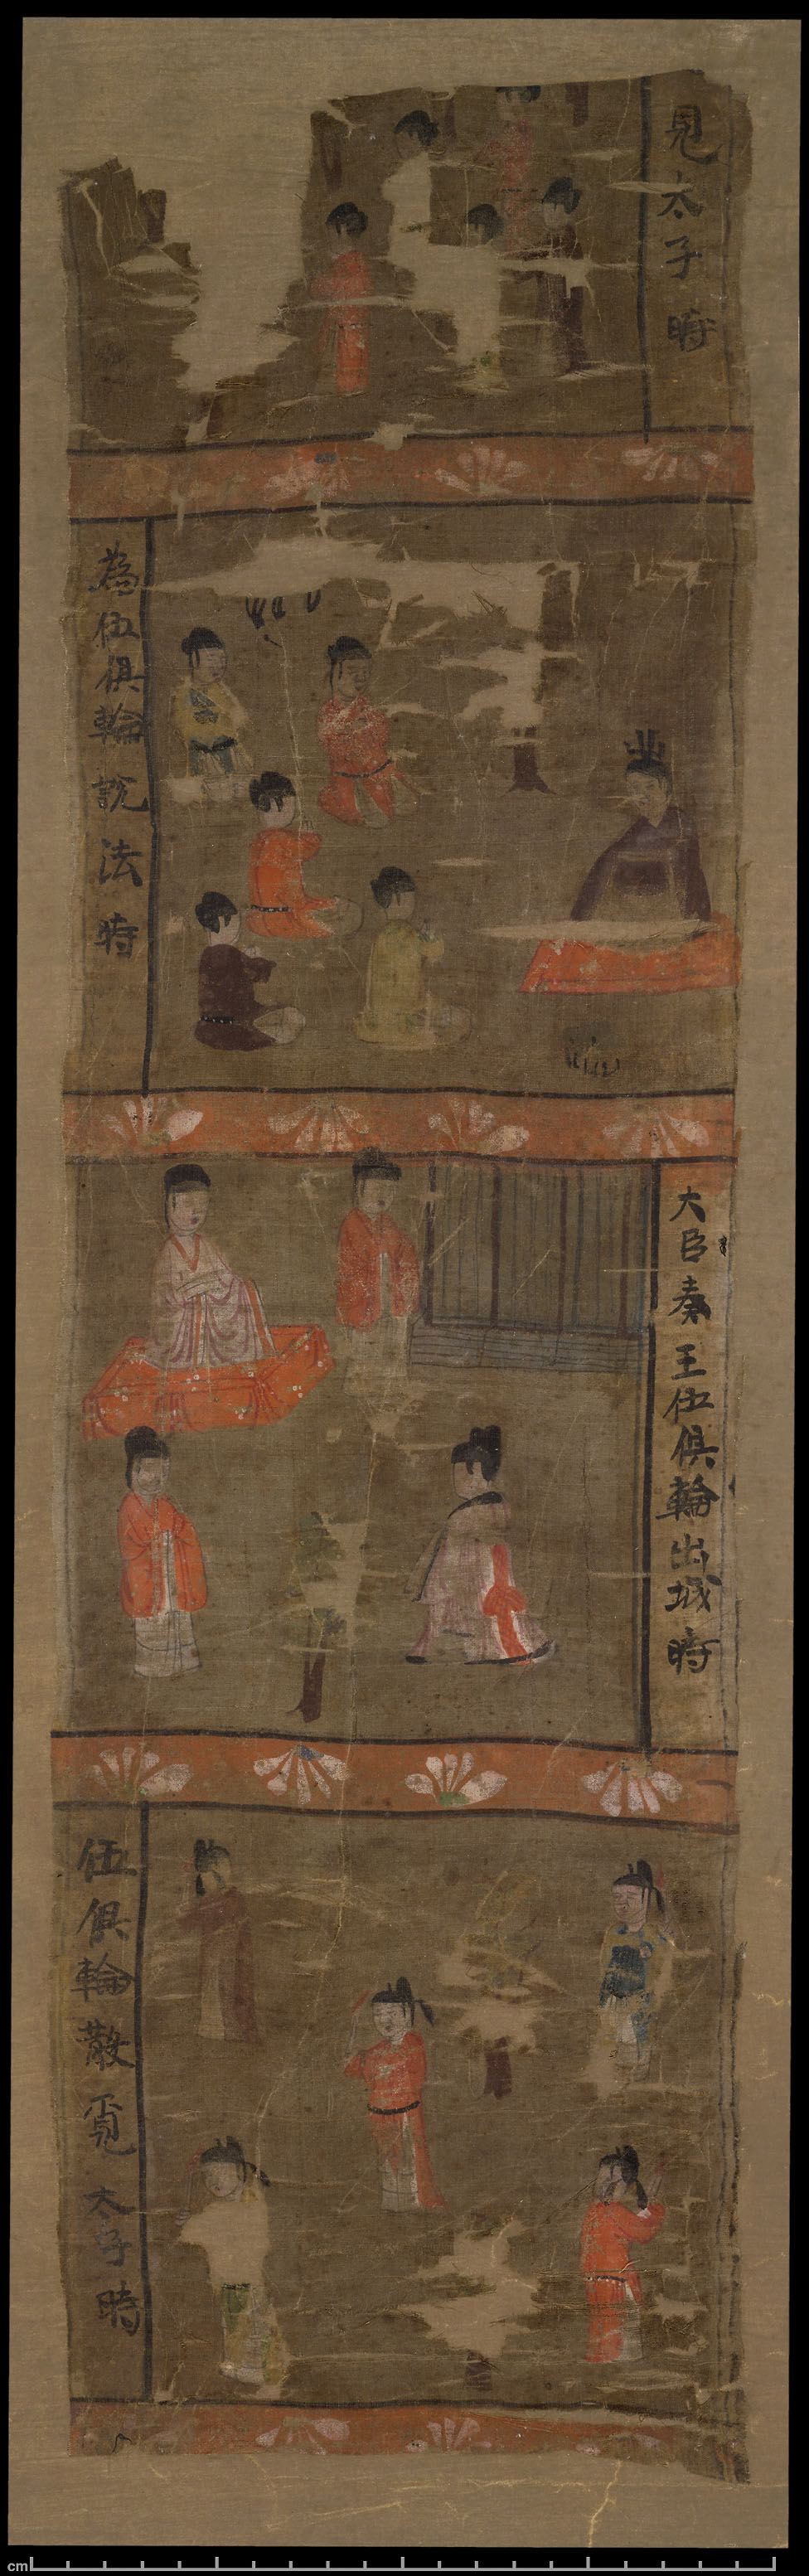 見太子時
為伍俱輪說法時
大臣奏王伍俱輪出城時
伍俱輪散覓太子時
cm